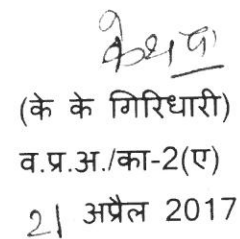 (के के गिरिधारी)
व.प्र.अ./का-2(ए)
21 अप्रैल 2017